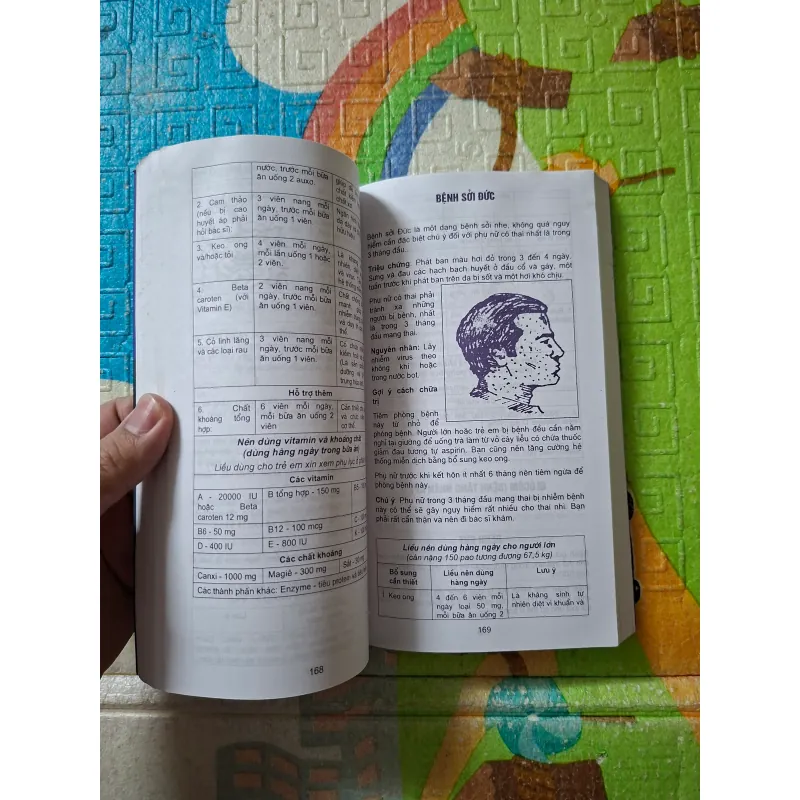 nước, trước mỗi bữa
ăn uống 2 auxơ.
2. Cam thảo
(nếu bị cao
huyết áp phải
hỏi bác sĩ):
3 viên nang mỗi
ngày, trước mỗi bữa
ăn uống 1 viên.
3. Keo ong
và/hoặc tỏi
4 viên mỗi ngày,
mỗi lần uống 1 hoặc
2 viên.
4. Beta
caroten (với
Vitamin E)
2 viên nang mỗi
ngày, trước mỗi bữa
ăn uống 1 viên.
5. Cỏ linh lăng
và các loại rau
3 viên nang mỗi
ngày, trước mỗi bữa
ăn uống 1 viên.
Hỗ trợ thêm
6. Chất
khoáng tổng
hợp:
6 viên mỗi ngày,
mỗi bữa ăn uống 2
viên
Nên dùng vitamin và khoáng chất
(dùng hàng ngày trong bữa ăn)
Liều dùng cho trẻ em xin xem phụ lục
Các vitamin
A - 20000 IU
hoặc Beta
caroten 12 mg
B tổng hợp - 150 mg
B6 - 50 mg
B12 - 100 mcg
D - 400 IU
E - 800 IU
Các chất khoáng
Canxi - 1000 mg
Magiê - 300 mg
Các thành phần khác: Enzyme - tiêu protein
168
BỆNH SỞI ĐỨC
Bệnh sởi Đức là một dạng bệnh sởi nhẹ, không quá nguy
hiểm cần đặc biệt chú ý đối với phụ nữ có thai nhất là trong
3 tháng đầu.
Triệu chứng: Phát ban màu hơi đỏ trong 3 đến 4 ngày.
Sưng và đau các hạch bạch huyết ở đầu cổ và gáy, một
tuần trước khi phát ban trên da bị sốt và một hơi khó chịu.
Phụ nữ có thai phải
tránh xa những
người bị bệnh, nhất
là trong 3 tháng
đầu mang thai.
Nguyên nhân: Lây
nhiễm virus theo
không khí hoặc
trong nước bọt.
Gợi ý cách chữa
trị
Tiêm phòng bệnh
này từ nhỏ để
phòng bệnh. Người lớn hoặc trẻ em bị bệnh đều cần nằm
nghỉ tại giường để uống trà làm từ vỏ cây liễu có chứa thuốc
giảm đau tương tự aspirin. Bạn cũng nên tăng cường hệ
thống miễn dịch bằng bổ sung keo ong.
Phụ nữ trước khi kết hôn ít nhất 6 tháng nên tiêm ngừa để
phòng bệnh này.
Chú ý: Phụ nữ trong 3 tháng đầu mang thai bị nhiễm bệnh
này có thể sẽ gây nguy hiểm rất nhiều cho thai nhi. Bạn
phải rất cẩn thận và nên đi bác sĩ khám.
Liều nên dùng hàng ngày cho người lớn
(cân nặng 150 pao tương đương 67,5 kg)
Bổ sung
cần thiết
Liều nên dùng
hàng ngày
Lưu ý
1. Keo ong
4 đến 6 viên mỗi
ngày loại 50 mg,
mỗi bữa ăn uống 2
Là kháng sinh tự
nhiên diệt vi khuẩn và
169